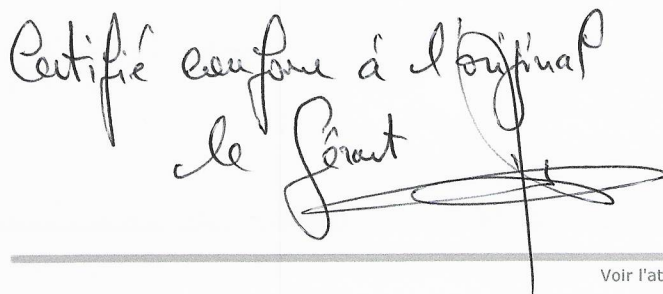 Certifié conforme à l'original
le Gérant
Voir l'at